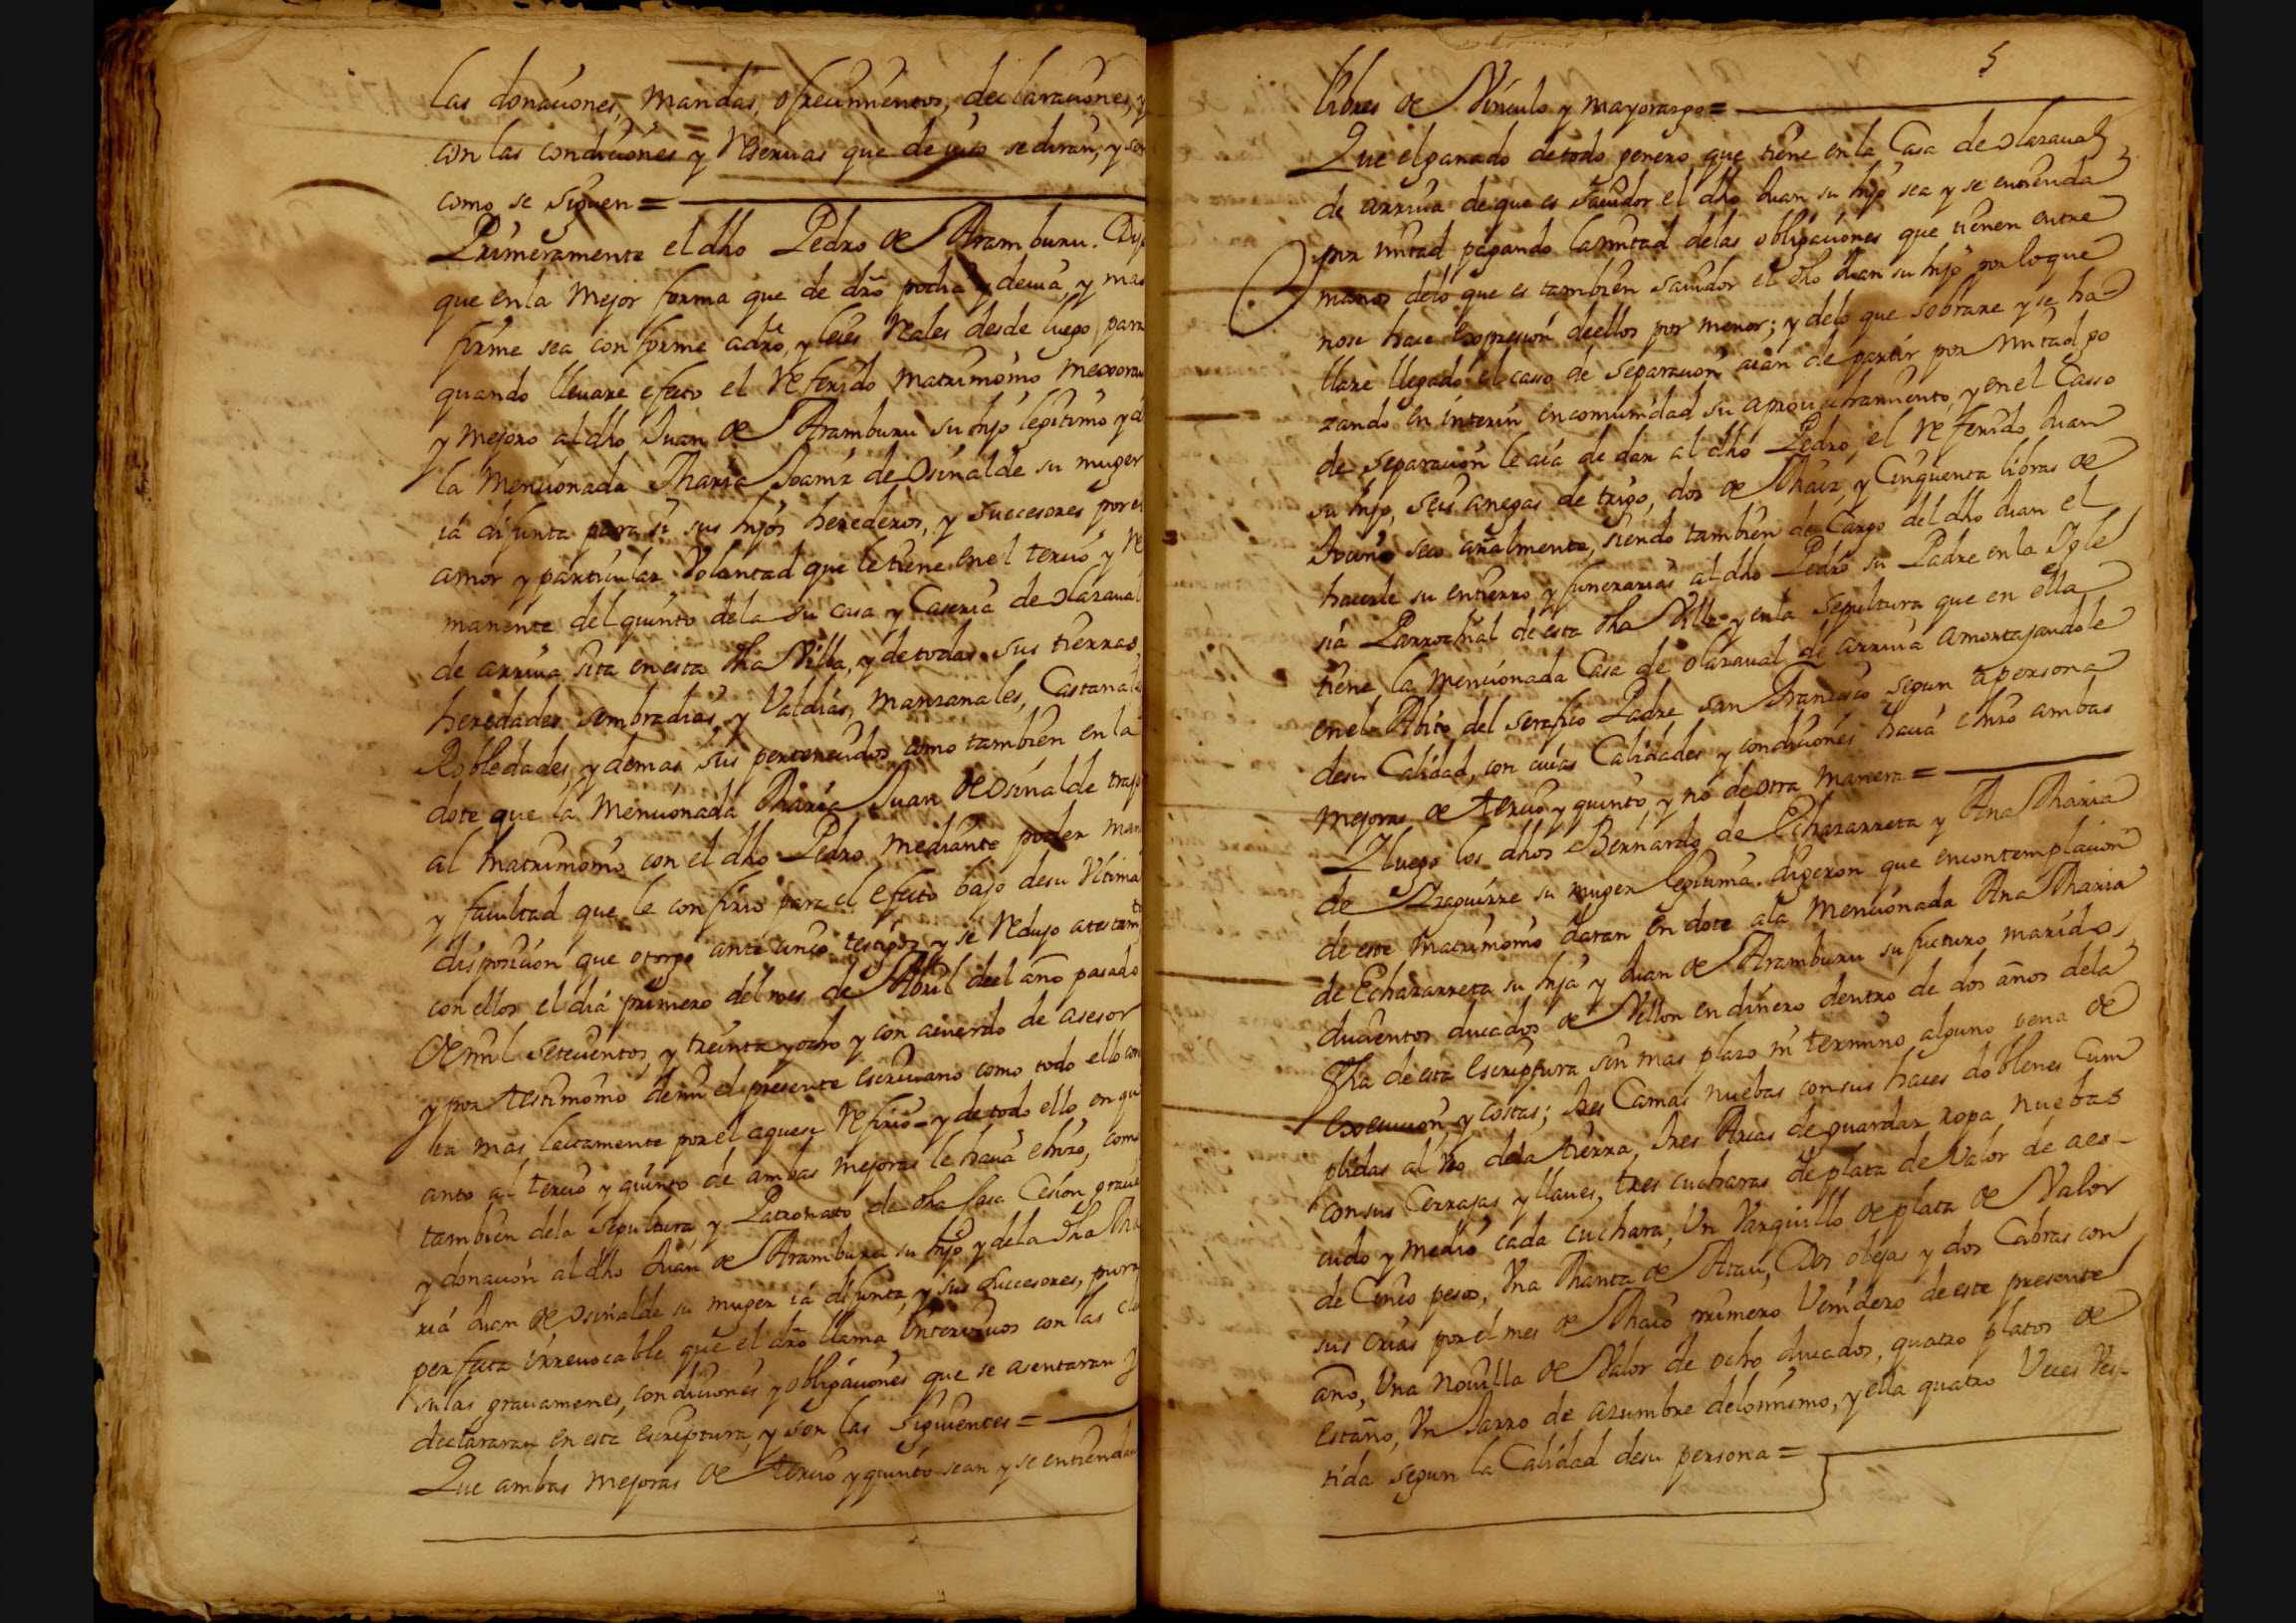 las donaciones, mandas, ofrecimientos, declaraciones, y
con las condiciones y reseruas que de iuso se diran, y son
como se siguen =
Primeramente el dho Pedro de Aramburu. Dijo
que en la mejor forma que de dro podia y deuia, y mas
firme sea conforme a dro, y leies reales desde luego para
quando lleuare efecto el referido matrimonio
y mejoro al dho Juan de Aramburu su hijo legitimo y de
la mencionada Maria Joana de Osinalde su muger
ia difunta para si sus hijos herederos, y succesores por el
amor y particular voluntad que le tiene en el tercio y re
manente del quinto de la su casa y Caseria de Olazaual
de arriua sita en esta dha Villa, y de todas sus tierras,
heredades sembradias, y valdias, manzanales, Castanales
Robledades, y demas sus pertenecidos, como tambien en la
dote que la mencionada Maria Juan de Osinalde trajo
al matrimonio con el dho Pedro mediante poder
y facultad que le confirio para el efecto bajo de su vltima
disposicion que otorgo ante cinco testigos y se redujo a testamto
con ellos el dia primero del mes de Abril del año pasado
de mil setecientos, y treinta y ocho y con acuerdo de asesor
y por testimonio de mi el presente escriuano como todo ello cons
ta mas lactamente por el a que se refirio y de todo ello en qu
anto al tercio y quinto de ambas mejoras le hacia e hizo, como
tambien de la sepultura, y Patronato de dha Casa Cesion gracia
y donacion al dho Juan de Aramburu su hijo y de la dha Ma
ria Juan de Osinalde su muger ia difunta, y sus succesores, pura
perfecta irreuocable que el dro llama intervivos con las clau
sulas grauamenes, condiciones y obligaciones que se asentaran y
declararan en esta escriptura, y son las siguientes =
Que ambas mejoras de tercio y quinto sean y se entiendan
5
libres de Vinculo y mayorazgo =
Que el ganado de todo genero que tiene en la Casa de Olazaual
de arriua de que es sauidor el dho Juan su hijo sea y se entienda
por mitad pagando la mitad de las obligaciones que tienen entre
manos de lo que es tambien sauidor el dho Juan su hijo por lo que
no se hace expresion de ellos por menor; y de lo que sobrare y se ha
llare llegado el casso de separacion aian de partir por mitad go
zando en interin en comunidad su aprouechamiento, y en el Casso
de separacion le aia de dar al dho Pedro, el referido Juan
su hijo, seis anegas de trigo, dos de Maiz, y Cinquenta libras de
tocino seco añalmente, siendo tambien de Cargo del dho Juan el
hacerle su entierro y funerarias al dho Pedro su Padre en la Igle
sia Parrochial de esta dha Villa y en la Sepultura que en ella
tiene la mencionada Casa de Olazaual de arriua amortajandole
en el Abito del serafico Padre san Francisco segun a persona
de su Calidad, con cuias Calidades y condiciones hacia e hizo ambas
mejoras de tercio y quinto, y no de otra manera =
I luego los dhos Bernardo de Echazarreta y Ana Maria
de Izaguirre su muger legitima. digeron que en contemplacion
de este Matrimonio daran en dote a la mencionada Ana Maria
de Echazarreta su hija y Juan de Aramburu su futuro marido,
ducientos ducados de Vellon en dinero dentro de dos años de la
fha de esta Escriptura sin mas plazo ni termino alguno pena de
execucion y costas; tres Camas nuebas con sus haces doblenes cum
plidas al uso de la tierra, tres Arcas de guardar ropa nuebas
con sus Cerrajas y llaues, tres cucharas de plata de Valor de aes-
cudo y medio cada cuchara, Un Varquillo de plata de Valor
de Cinco pesos, Vna Manta de Atau, Dos obejas y dos Cabras con
sus crias por el mes de Maio primero Venidero de este presente
año, Vna nouilla de Valor de ocho ducados, quatro platos de
estaño, Vn Jarro de azumbre de lo mismo, y ella quatro Veces Ves-
tida segun la Calidad de su persona =